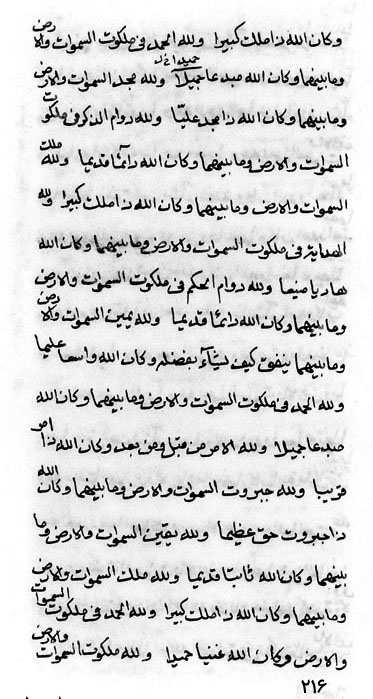 وكان الله ذا ملك كبيرا ولله الحمد في ملكوت السموات والارض
وما بينهما وكان الله مبدعا جميلا ولله مجد السموات والارض
وما بينهما وكان الله ذا مجد عليّا ولله دوام الذكر في ملكوت
السموات والارض وما بينهما وكان الله دائما قديما ولله ملك
السموات والارض وما بينهما وكان الله ذا ملك كبيرا ولله
الهداية في ملكوت السموات والارض وما بينهما وكان الله
هاديا ولله دوام الحكم في ملكوت السموات والارض
وما بينهما وكان الله دائما قديما ولله يمين السموات والارض
وما بينهما ينفق كيف يشآء بفضله وكان الله واسعا عليما
ولله الحمد في ملكوت السموات والارض وما بينهما وكان الله
مبدعا جميلا ولله الامر من قبل ومن بعد وكان الله ذا امر
قريبا ولله جبروت السموات والارض وما بينهما وكان الله
ذا جبروت حق عظيما ولله يقين السموات والارض وما
بينهما وكان الله ثابتا قديما ولله ملك السموات والارض
وما بينهما وكان الله ذا ملك كبيرا ولله الحمد في ملكوت السموات
والارض وكان الله غنيا حميدا ولله ملكوت السموات والارض
٢١۶